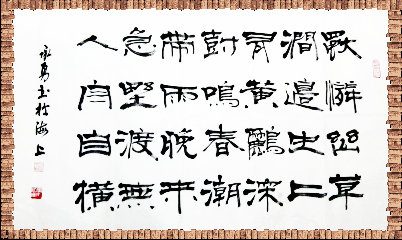 獨憐幽草
澗邊生上
有黃鸝深
樹鳴春潮
帶雨晚来
急野渡無
人舟自橫
於海上